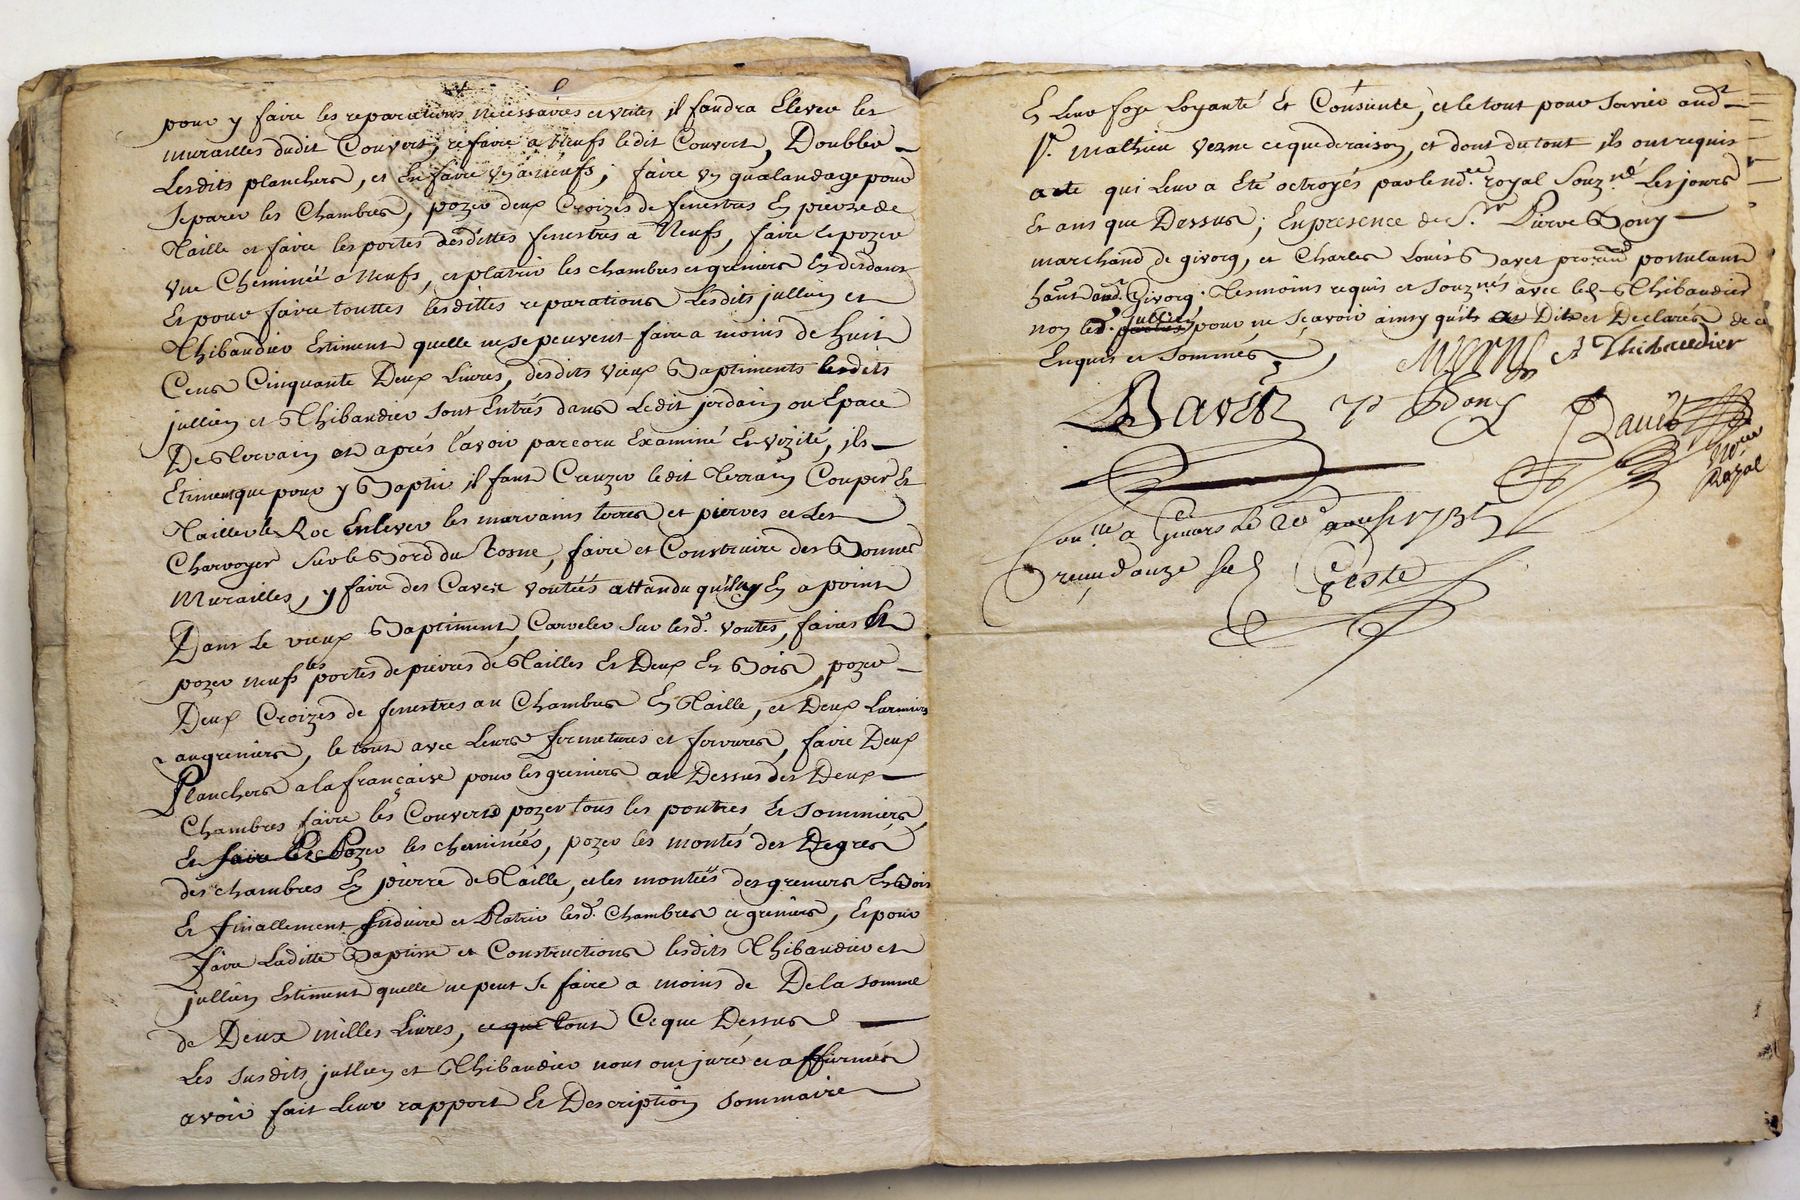 pour y faire les reparations necessaires et utiles il faudra Elever les
murailles dudit Couvert, refaire a Neufs ledit Couvert, Doubler
Lesdits planchers, et En faire un a neufs, faire un gualandage pour
Separer les Chambres, pozer deux Croizés de fenestres En pierre de
Taille et faire les portes desdittes fenestres a Neufs, faire Et pozer
une Cheminée a Neufs, et platrir les chambres et greniers En dedans
Et pour faire touttes lesdittes reparations Lesdits jullien et
Thibaudier Estiment quelle ne se peuvent faire a moins de huit
Cens Cinquante Deux Livres, desdits vieux Baptiments lesdits
jullien et Thibaudier sont Entrés dans Ledit jardain ou Epace
De Terrain et aprés lavoir parcoru Examiné Et vizité, ils
Etiment que pour y Baptir il faut Creuzer ledit Terrain Couper Et
Tailler le Roc Enlever les marrains terres et pierres et Les
Charroyer Sur le Bord du Rosne, faire et Construire des Bonnes
Murailles, y faire des Caves voutées attandu quil ny En a point
Dans Le vieux Baptiment, Carreler Sur lesd. voutes, faires Et
pozer neufs les portes de pierres de Tailles Et Deux En Bois, pozer
Deux Croizés de fenestres au Chambres En Taille, et Deux Larmiers
au greniers, le tout avec Leurs fermetures et ferrures, faire Deux
Planchers a la française pour les greniers au Dessus des Deux
Chambres, faire les Couverts pozer tous les poutres Et Sommiers,
Et faire Et Pozer les cheminées, pozer les montés des Degres
des chambres En pierre de Taille, et les montées des greniers En Bois
Et finallement Enduire et Platrir lesd. Chambres et greniers, Et pour
faire Laditte Baptisse et Constructions lesdits Thibaudier et
jullien Estiment quelle ne peut Se faire a moins de De la somme
de Deux milles Livres, ce que tout Ce que Dessus
Les Susdits jullien et Thibaudier nous ont jurés et affirmés
avoir fait Leur rapport Et Description Sommaire
En Leur foye Loyauté Et Consiente, et le tout pour Servir aud.
Sr. Mathieu Verne ce que de raison, et dont du tout ils ont requis
acte qui Leur a Eté octroyés par le nore. royal Souzné. Les jours
Et ans que Dessus; En presence de Sr. Pierre Bony
marchand de givorg, et Charles Louis Bavet postulant
aud. Givorg. Tesmoins requis et Souznés avec led. Thibaudier
non led. Jullien pour ne Sçavoir ainsy quil a Dit et Declarés de ce
Enquis et Sommés
MVerne A Thibaudier
Bavet P Bony
Bavet
Nore.
Royal
a Givors le 20e aoust 1735
Reçu douze sols
Geste